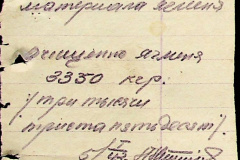 материала ячменя
очищенно ячменя
3350 кгр.
/три тысячи
триста пятьдесят/.